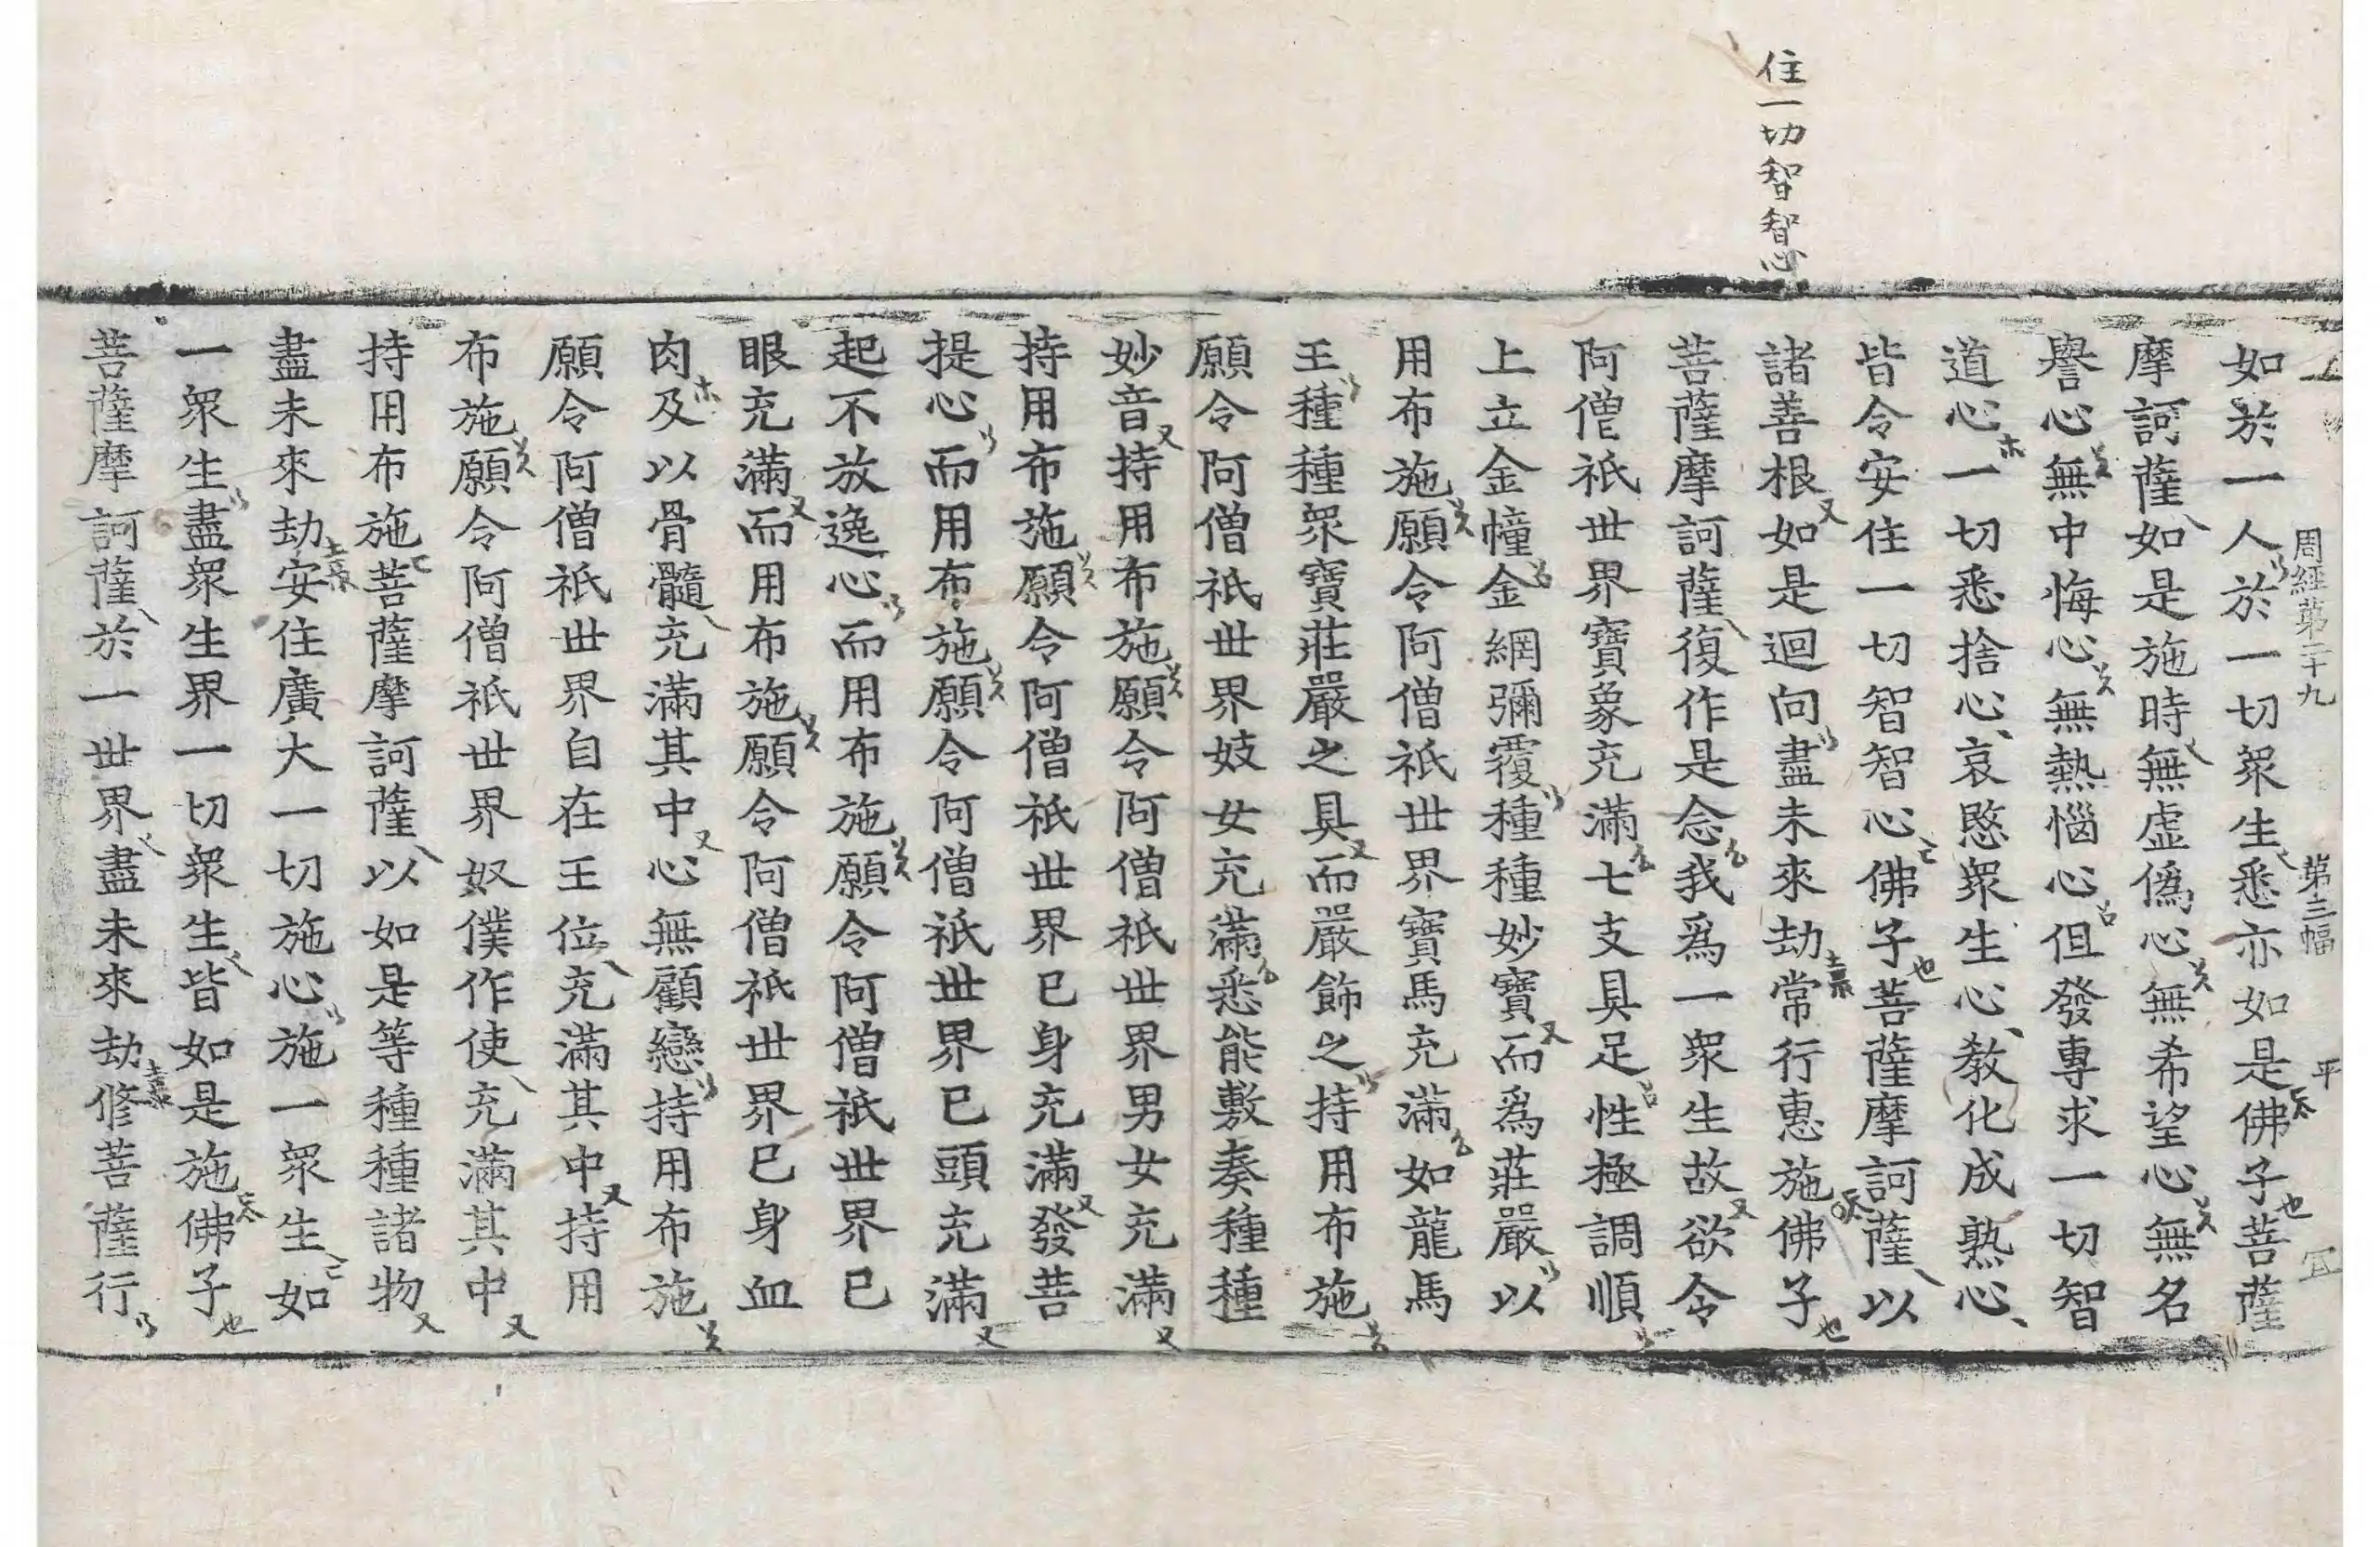 住一切智智心
周經第二十九 第三幅 平 宜
如於一人於一切衆生悉亦如是佛子菩薩
摩訶薩如是施時無虛僞心無希望心無名
譽心無中悔心無熱惱心但發專求一切智
道心一切悉捨心哀愍衆生心教化成熟心
皆令安住一切智智心佛子菩薩摩訶薩以
諸善根如是迴向盡未來劫常行惠施佛子
菩薩摩訶薩復作是念我爲一衆生故欲令
阿僧祇世界寶象充滿七支具足性極調順
上立金幢金網彌覆種種妙寶而爲莊嚴以
用布施願令阿僧祇世界寶馬充滿如龍馬
王種種衆寶莊嚴之具而嚴飾之持用布施
願令阿僧祇世界妓女充滿悉能敷奏種種
妙音持用布施願令阿僧祇世界男女充滿
持用布施願令阿僧祇世界己身充滿發菩
提心而用布施願令阿僧祇世界己頭充滿
起不放逸心而用布施願令阿僧祇世界己
眼充滿而用布施願令阿僧祇世界己身血
肉及以骨髓充滿其中心無顧戀持用布施
願令阿僧祇世界自在王位充滿其中持用
布施願令阿僧祇世界奴僕作使充滿其中
持用布施菩薩摩訶薩以如是等種種諸物
盡未來劫安住廣大一切施心施一衆生如
一衆生盡衆生界一切衆生皆如是施佛子
菩薩摩訶薩於一世界盡未來劫修菩薩行